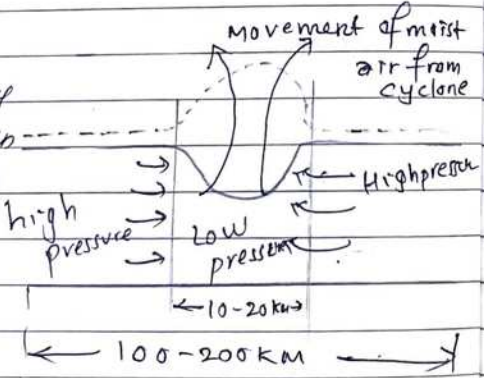 movement of moist
air from
cyclone
high
pressure
Low
pressen
Highpressen
10-20km
100-200KM